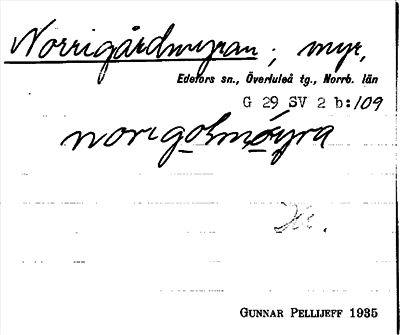 Norrigårdmyran; myr,
Edefors sn., Överluleå tg., Norrb. län
G 29 SV 2 b:109
norigołmóyra
GUNNAR PELLIJEFF 1935